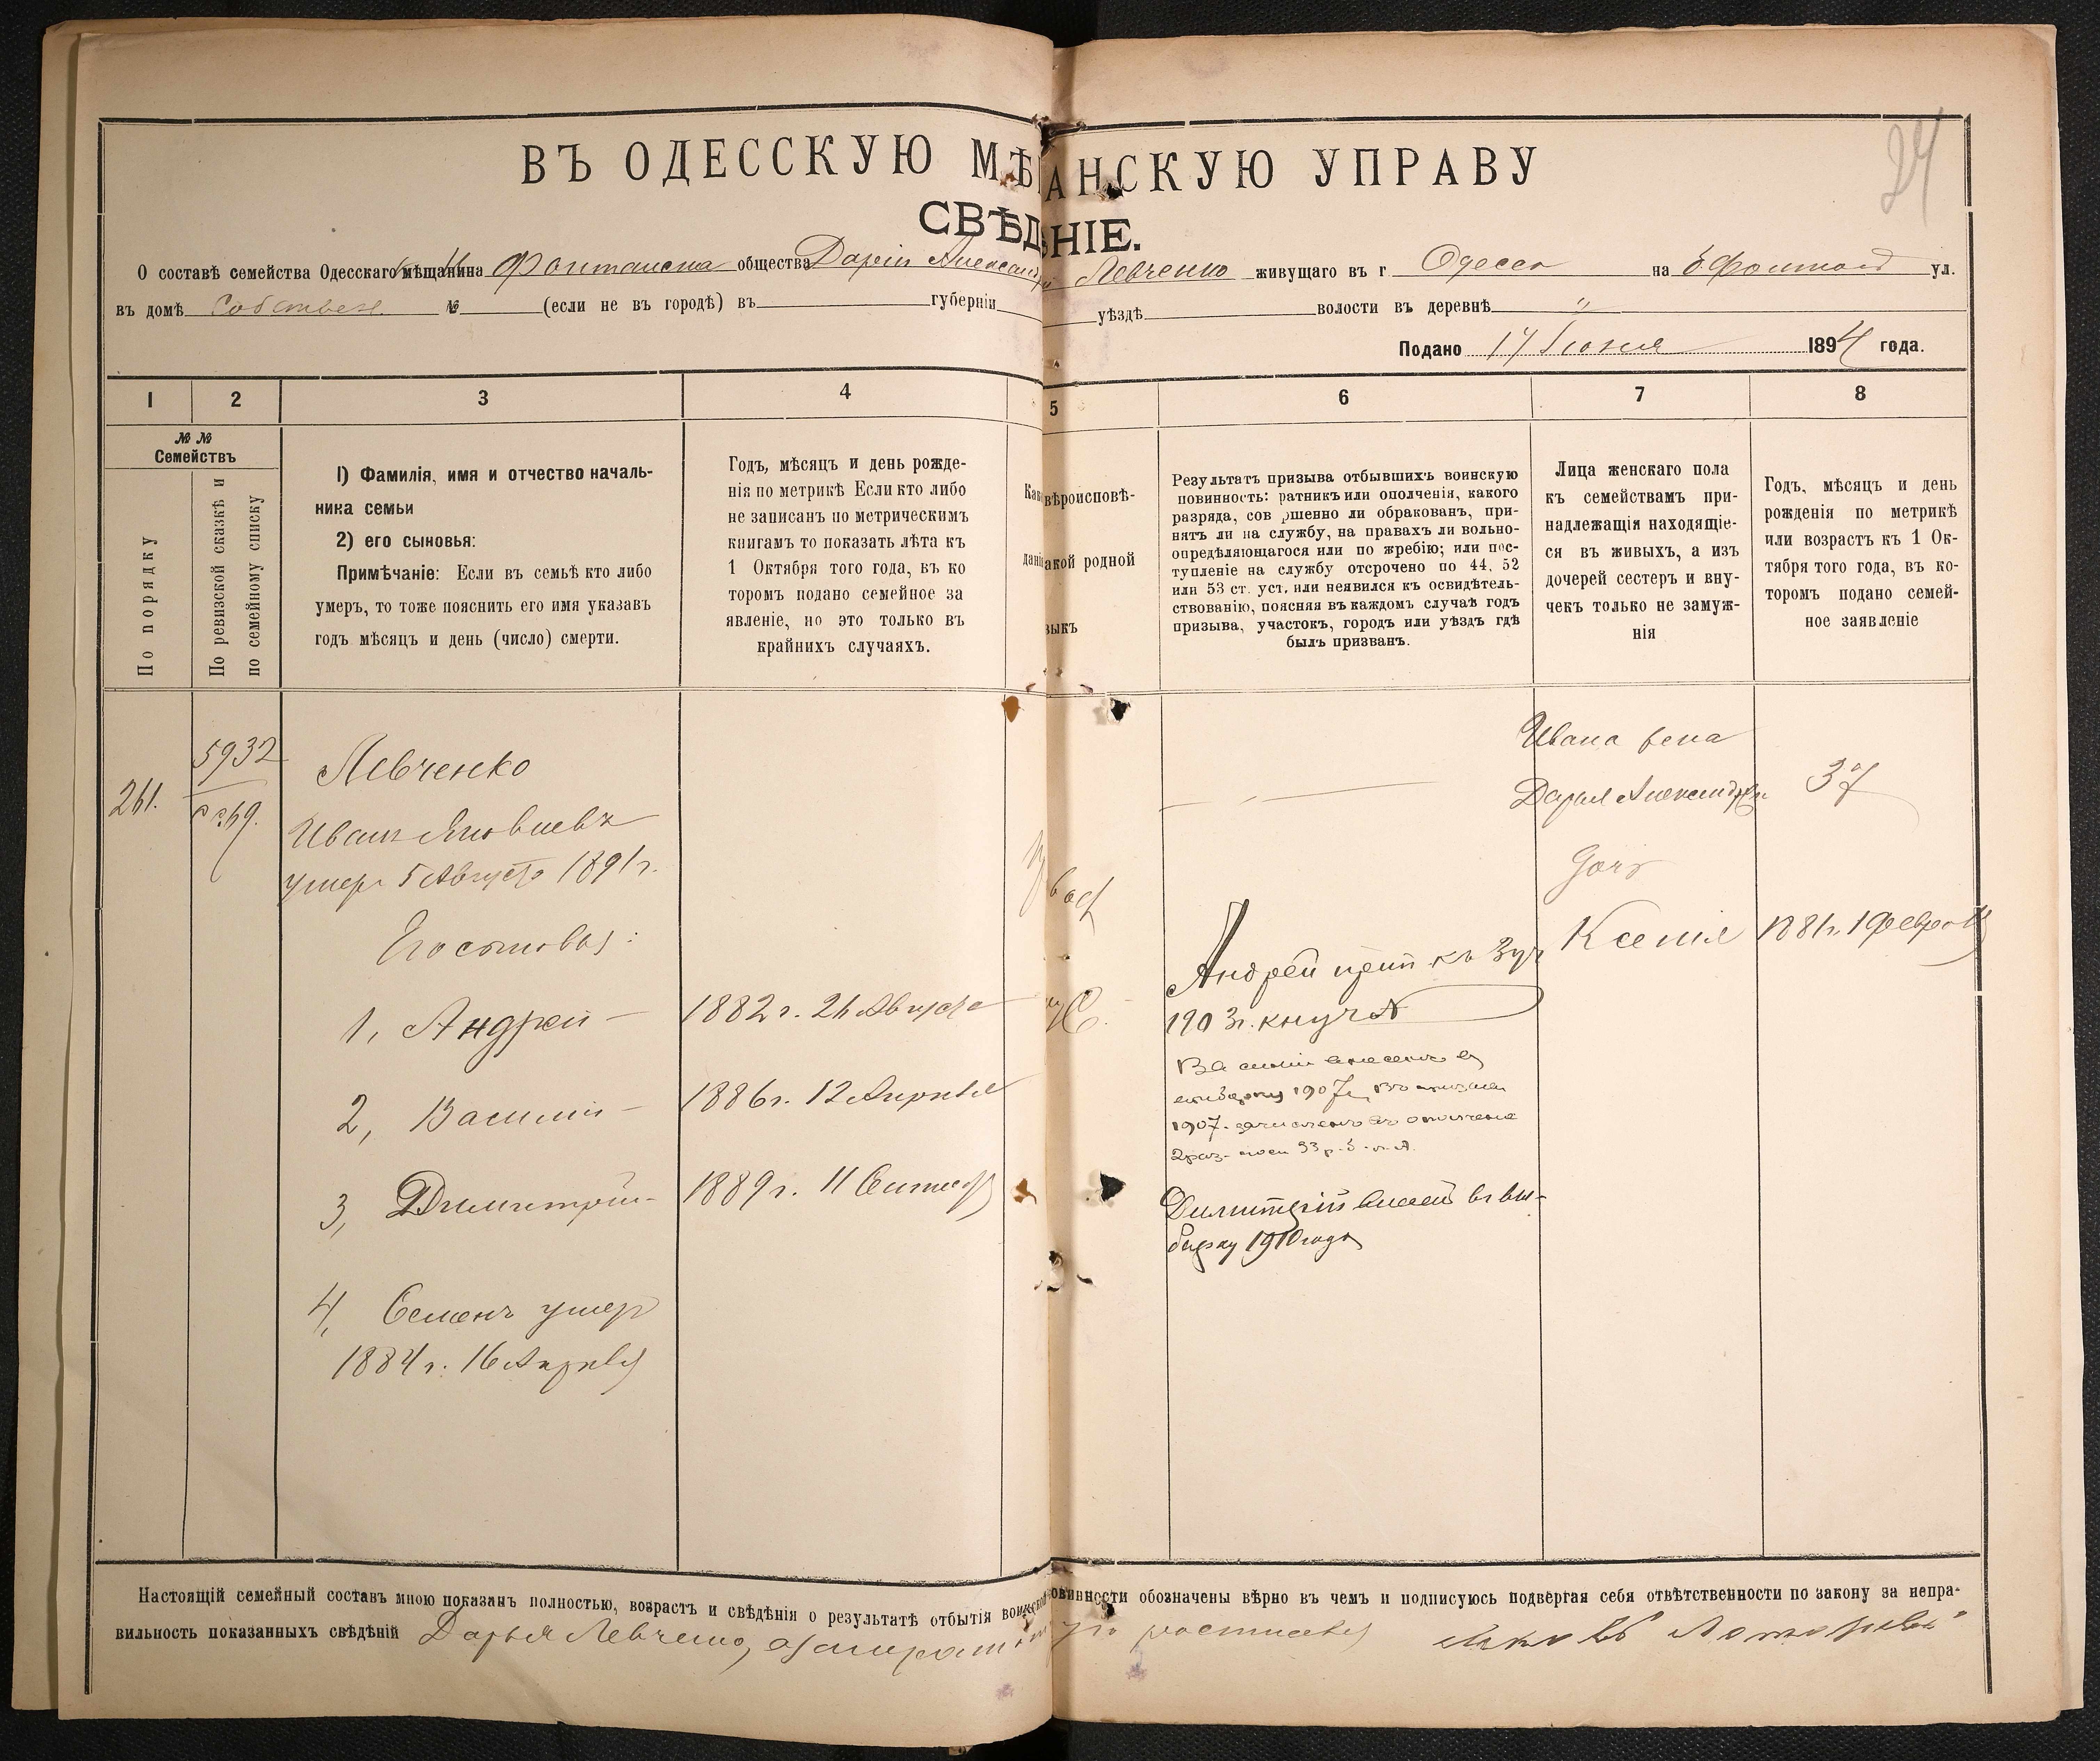 24
ВЪ ОДЕССКУЮ МѢ АНСКУЮ УПРАВУ
СВѢДѢНІЕ.
О составѣ семейства Одесскаго мѣщанина Фонтанска общества Даріи Александ Левченко живущаго въ г Одесса на Б Фонтанѣ ул.
въ домѣ Собствен. № (если не въ городѣ) въ губерніи уѣздѣ волости въ деревнѣ "
Подано 14 Іюня 1894 года.
1 2 3 4 5 6 7 8
№ № Семействъ
По порядку
По ревизской сказкѣ и по семейному списку
1) Фамилія, имя и отчество началь-
ника семьи
2) его сыновья:
Примѣчаніе: Если въ семьѣ кто либо
умеръ, то тоже пояснить его имя указавъ
годъ мѣсяцъ и день (число) смерти.
Годъ, мѣсяцъ и день рожде-
нія по метрикѣ Если кто либо
не записанъ по метрическимъ
книгамъ то показать лѣта къ
1 Октября того года, въ ко
торомъ подано семейное за
явленіе, но это только въ
крайнихъ случаяхъ.
вѣроисповѣ-
данія акой родной
зыкъ
Результатъ призыва отбывшихъ воинскую
повинность: ратникъ или ополченія, какого
разряда, сов ршенно ли обракованъ, при-
нятъ ли на службу, на правахъ ли вольно-
опредѣляющагося или по жребію; или пос-
тупленіе на службу отсрочено по 44, 52
или 53 ст. уст. или неявился къ освидѣтель-
ствованію, поясняя въ каждомъ случаѣ годъ
призыва, участокъ, городъ или уѣздъ гдѣ
былъ призванъ.
Лица женскаго пола
къ семействамъ при-
надлежащія находящіе-
ся въ живыхъ, а изъ
дочерей сестеръ и вну-
чекъ только не замуж-
нія
Годъ, мѣсяцъ и день
рожденія по метрикѣ
или возрастъ къ 1 Ок-
тября того года, въ ко-
торомъ подано семей-
ное заявленіе
261.
5932
Левченко
Иванъ Яковлевъ
умеръ 5 Августа 1891 г.
Его сыновья:
1, Андрей – 1882 г. 26 Августа
2, Василій – 1886 г. 12 Апрѣля
3, Димитрій – 1889 г. 11 Сентяб
4, Семенъ умер
1884 г. 16 Апрѣля
Прав
Андрей прип къ 3 уч
1903 г.
Василій внесенъ въ
выборку 1907 г. Въ призыв
1907 г. зачисленъ въ ополчение
2 раз.
Димитрій внесен въ вы-
борку 1910 года
Ивана жена
Дарья Александр 37
дочь
Ксенія 1881 г. 1 Феврал
Настоящій семейный составъ мною показанъ полностью, возрастъ и свѣдѣнія о результатѣ отбытія воинской повинности обозначены вѣрно въ чемъ и подписуюсь подвергая себя отвѣтственности по закону за непра-
вильность показанныхъ свѣдѣній Дарья Левченко, а неграмотную росписался Яковъ